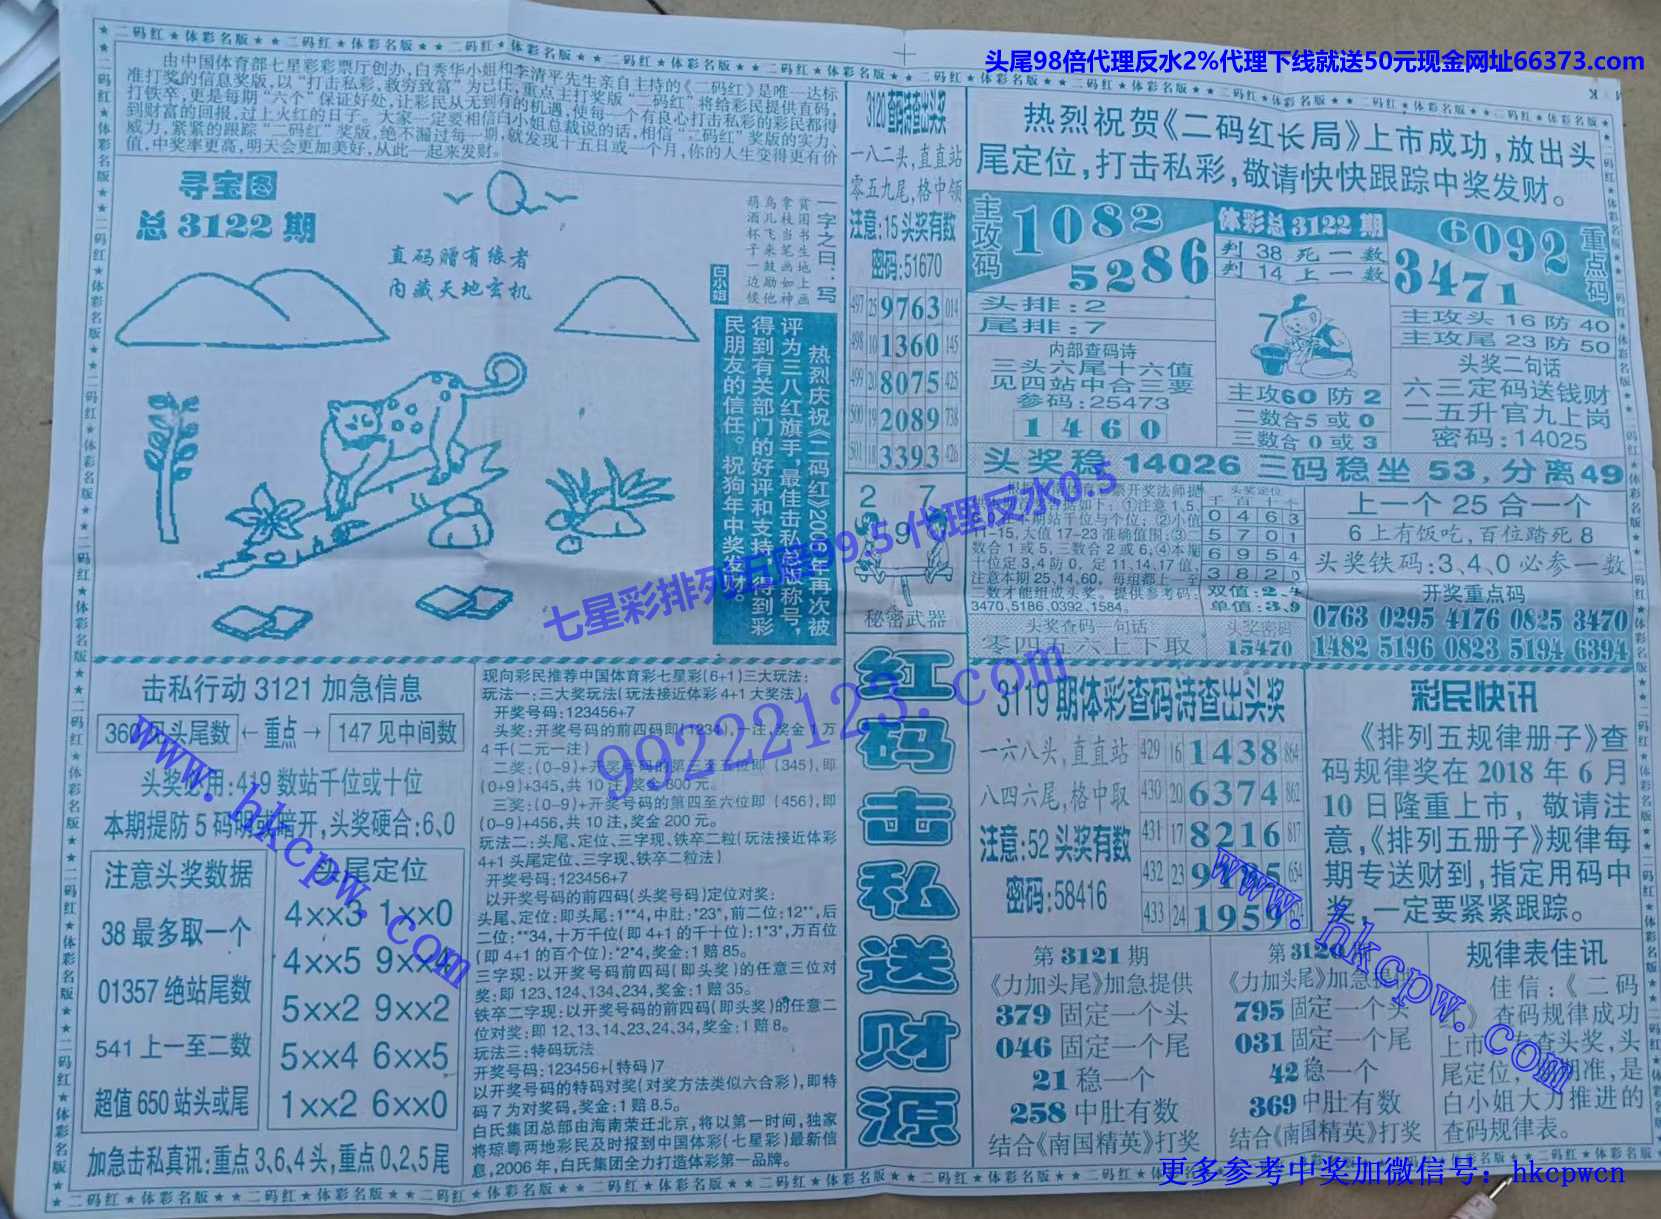 头尾98倍代理反水2%代理下线就送50元现金网址66373.com
二码红★体彩名版
由中国体育部七星彩彩票厅创办,白秀华小姐和李清平先生亲自主持的《二码红》是唯一达标
准打奖的信息奖版,以“打击私彩,救穷致富”为己任,重点主打奖版“二码红”将给彩民提供直码,
打铁卒,更是每期“六个”保证好处,让彩民从无到有的机遇,使每一个有良心打击私彩的彩民都得
到财富的回报,过上火红的日子。大家一定要相信白小姐总裁说的话,相信“二码红”奖版的实力、
威力,紧紧的跟踪“二码红”奖版,绝不漏过每一期,就发现十五日或一个月,你的人生变得更有价
值,中奖率更高,明天会更加美好,从此一起来发财。
寻宝图
总3122期
直码赠有缘者
内藏天地玄机
一字之曰:写
贫困书生地上画
拿枝当笔画如神
鸟儿飞来鼓励他
葫酒杯子一边候
白小姐
热烈庆祝《二码红》2006年再次被
评为三八红旗手,最佳击私总版称号,
得到有关部门的好评和支持,得到彩
民朋友的信任。祝狗年中奖发财。
3120查码诗查出头奖
一八二头,直直站
零五九尾,格中领
注意:15头奖有数
密码:51670
497 25 9763 014
498 10 1360 145
499 20 8075 425
500 19 2089 738
501 18 3393 426
2 7
9
秘密武器
红码击私送财源
热烈祝贺《二码红长局》上市成功,放出头
尾定位,打击私彩,敬请快快跟踪中奖发财。
主攻码
1082
5286
体彩总3122期
判38死一数
判14上一数
6092
3471
重点码
头排:2
尾排:7
内部查码诗
三头六尾十六值
见四站中合三要
参码:25473
1 4 6 0
7
主攻60防2
二数合5或0
三数合0或3
主攻头16防40
主攻尾23防50
头奖二句话
六三定码送钱财
二五升官九上岗
密码:14025
头奖稳14026三码稳坐53,分离49
票开奖法师提
据如下:①注意1,5
本期站千位与个位;②小值
11-15,大值17-23准确值围;③二
数合1或5,三数合2或6,④本期
十位定3,4防0,定11,14,17值,
注意本期25,14,60,每组都上一至
三数才能组成头奖。提供参考码:
3470,5186,0392,1584。
头奖定位
千百十个
0 4 6 3
5 7 0 1
6 9 5 4
3 8 2
双值:2、4
单值:3、9
头奖查码一句话
零四五六上下取
头奖密码
15470
上一个25合一个
6上有饭吃,百位踏死8
头奖铁码:3、4、0必参一数
开奖重点码
0763 0295 4176 0825 3470
1482 5196 0823 5194 6394
七星彩排列五赔99.5 代理反水0.5
99222123.com
www.hkcpw.com
www.hkcpw.com
击私行动3121加急信息
360见头尾数←重点→147见中间数
头奖必用:419数站千位或十位
本期提防5码明摆暗开,头奖硬合:6、0
注意头奖数据
38最多取一个
01357绝站尾数
541上一至二数
超值650站头或尾
头尾定位
4××3 1××0
4××5 9××4
5××2 9××2
5××4 6××5
1××2 6××0
加急击私真讯:重点3、6、4头,重点0、2、5尾
现向彩民推荐中国体育彩七星彩(6+1)三大玩法:
玩法一:三大奖玩法(玩法接近体彩4+1大奖法)
开奖号码:123456+7
头奖:开奖号码的前四码即(1234),一注,奖金1万
4千(二元一注)
二奖:(0–9)+开奖号码的第三至五位即(345),即
(0+9)+345,共10注,奖金300元。
三奖:(0–9)+开奖号码的第四至六位即(456),即
(0–9)+456,共10注,奖金200元。
玩法二:头尾、定位、三字现、铁卒二粒(玩法接近体彩
4+1头尾定位、三字现、铁卒二粒法)
开奖号码:123456+7
以开奖号码的前四码(头奖号码)定位对奖:
头尾、定位:即头尾:1**4,中肚:*23*,前二位:12**,后
二位:**34,十万千位(即4+1的千十位):1*3*,万百位
(即4+1的百个位):*2*4,奖金:1赔85。
三字现:以开奖号码前四码(即头奖)的任意三位对
奖:即123、124、134、234,奖金:1赔35。
铁卒二字现:以开奖号码的前四码(即头奖)的任意二
位对奖:即12、13、14、23、24、34,奖金:1赔8。
玩法三:特码玩法
开奖号码:123456+(特码)7
以开奖号码的特码对奖(对奖方法类似六合彩),即特
码7为对奖码,奖金:1赔8.5。
白氏集团总部由海南荣迁北京,将以第一时间,独家
将琼粤两地彩民及时报到中国体彩(七星彩)最新信
息,2006年,白氏集团全力打造体彩第一品牌。
3119期体彩查码诗查出头奖
一六八头,直直站
八四六尾,格中取
注意:52头奖有数
密码:58416
429 16 1438 864
430 20 6374 862
431 17 8216 817
432 23 9 5 654
433 24 1959
彩民快讯
《排列五规律册子》查
码规律奖在2018年6月
10日隆重上市,敬请注
意,《排列五册子》规律每
期专送财到,指定用码中
奖,一定要紧紧跟踪。
第3121期
《力加头尾》加急提供
379固定一个头
046固定一个尾
21稳一个
258中肚有数
结合《南国精英》打奖
第3120
《力加头尾》加急提
795固定一个头
031固定一个尾
42稳一个
369中肚有数
结合《南国精英》打奖
规律表佳讯
佳信:《二码
》查码规律成功
上市 查头奖,头
尾定位, 期准,是
白小姐大力推进的
查码规律表。
更多参考中奖加微信号:hkcpwcn